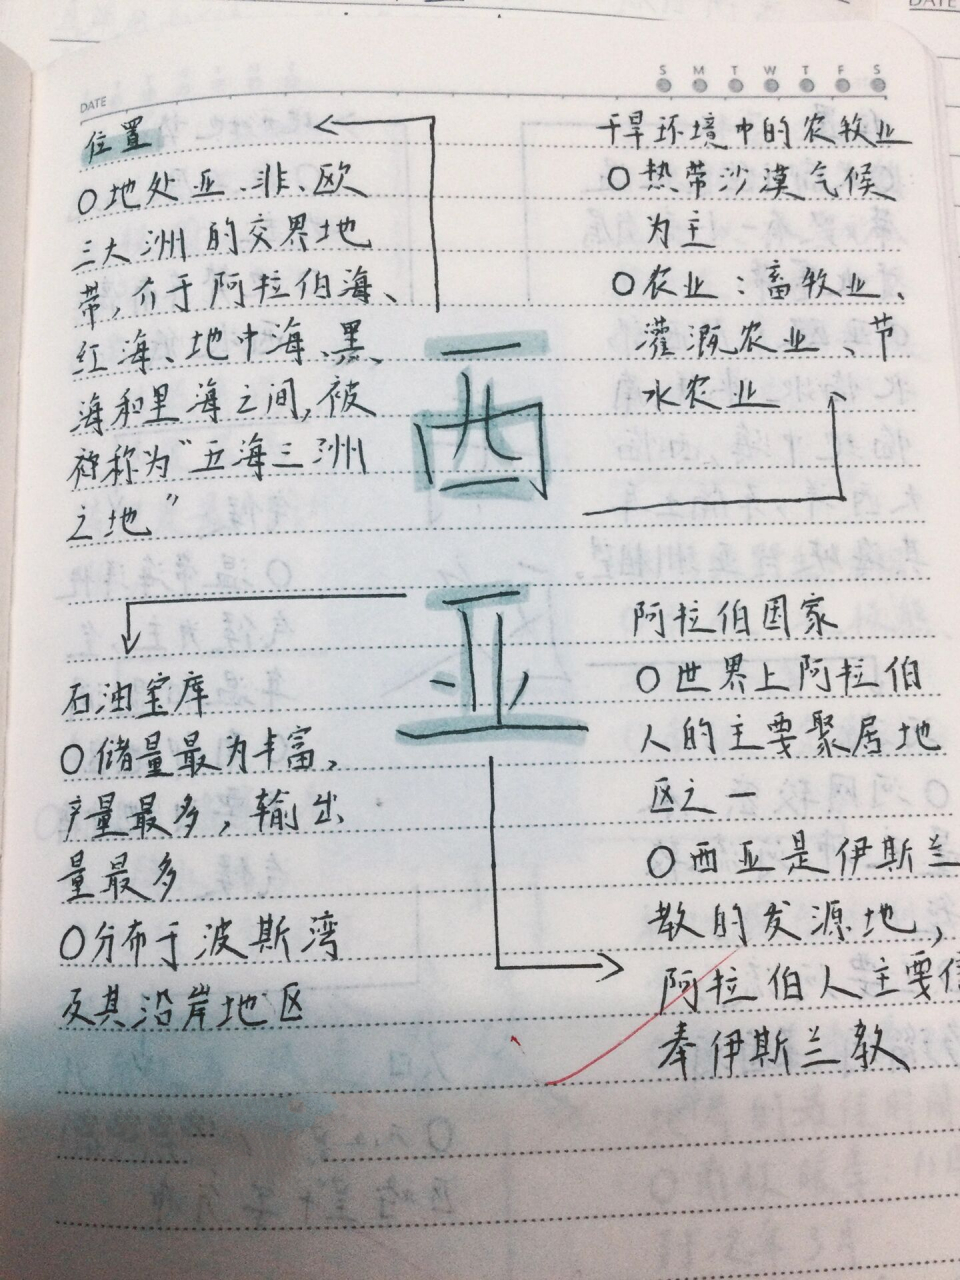 DATE
S M T W T F S
位置
O地处亚、非、欧
三大洲的交界地
带,介于阿拉伯海、
红海、地中海、黑、
海和里海之间,被
被称为“五海三洲
之地”
干旱环境中的农牧业
O热带沙漠气候
为主
O农业:畜牧业、
灌溉农业、节
水农业
西
亚
石油宝库
O储量最为丰富,
产量最多,输出
量最多
O分布于波斯湾
及其沿岸地区
阿拉伯国家
O世界上阿拉伯
人的主要聚居地
区之一
O西亚是伊斯兰
教的发源地,
阿拉伯人主要信
奉伊斯兰教